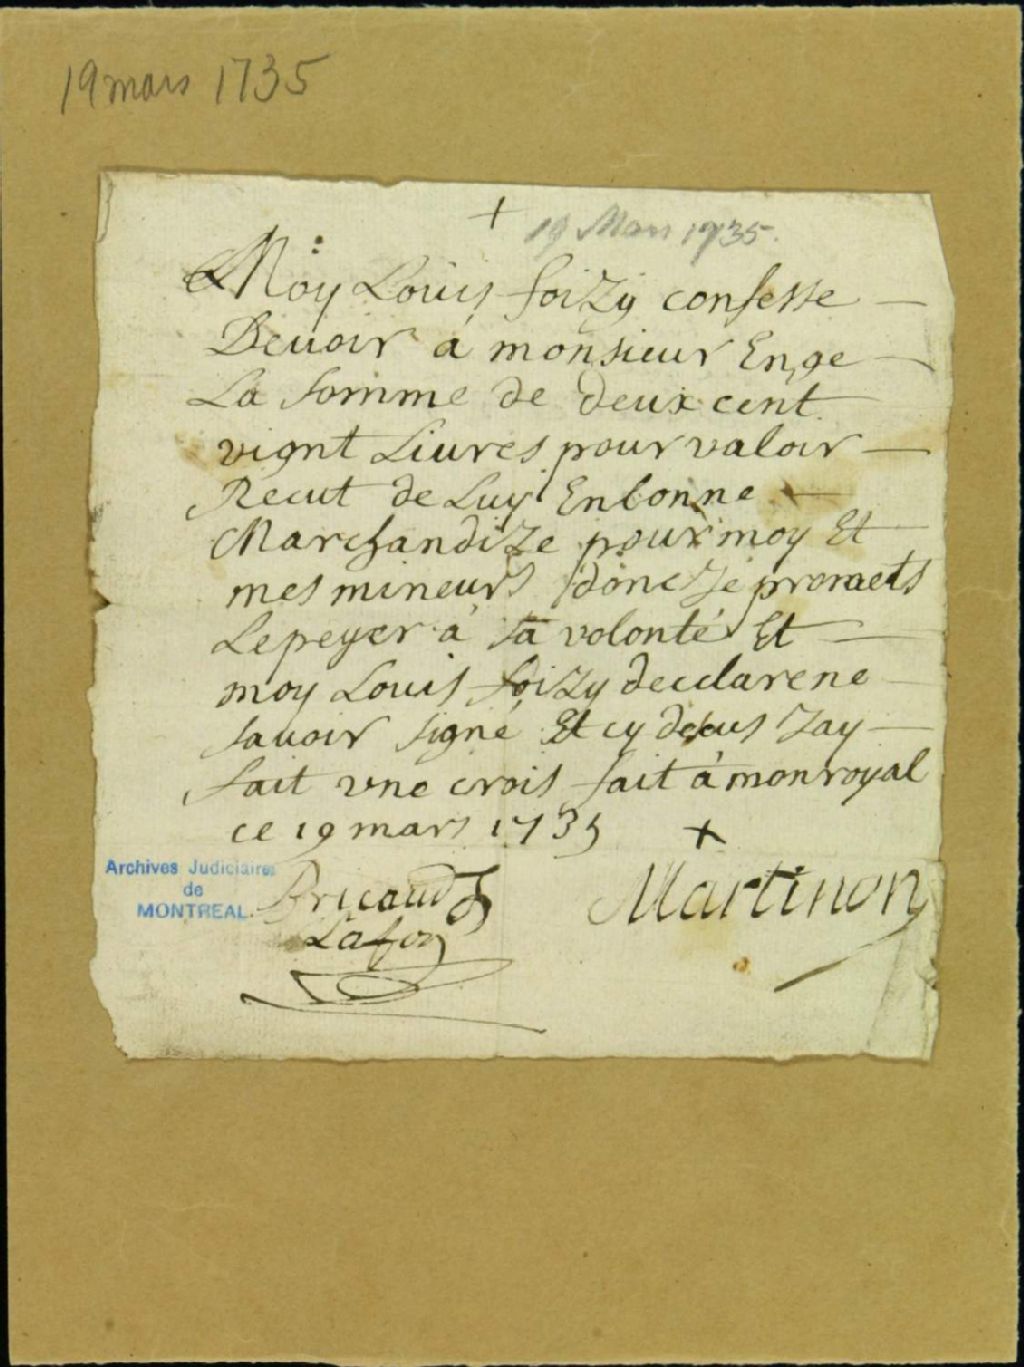 19 mars 1735
+ 19 Mars 1735.
Moy Louis foizy confesse
Devoir á monsieur Enge
La somme de deux cent
vignt Livres pour valoir
Recut de Luy En bonne
Marchandize pour moy Et
mes mineurs donc Je promets
Lepeyer á sa volonté Et
moy Louis foizy declare ne
savoir signé Et cy desus Jay
fait vne crois fait á monroyal
ce 19 mars 1735 +
Archives Judiciaires
de
MONTREAL.
Bricaud Martinon
Lafon